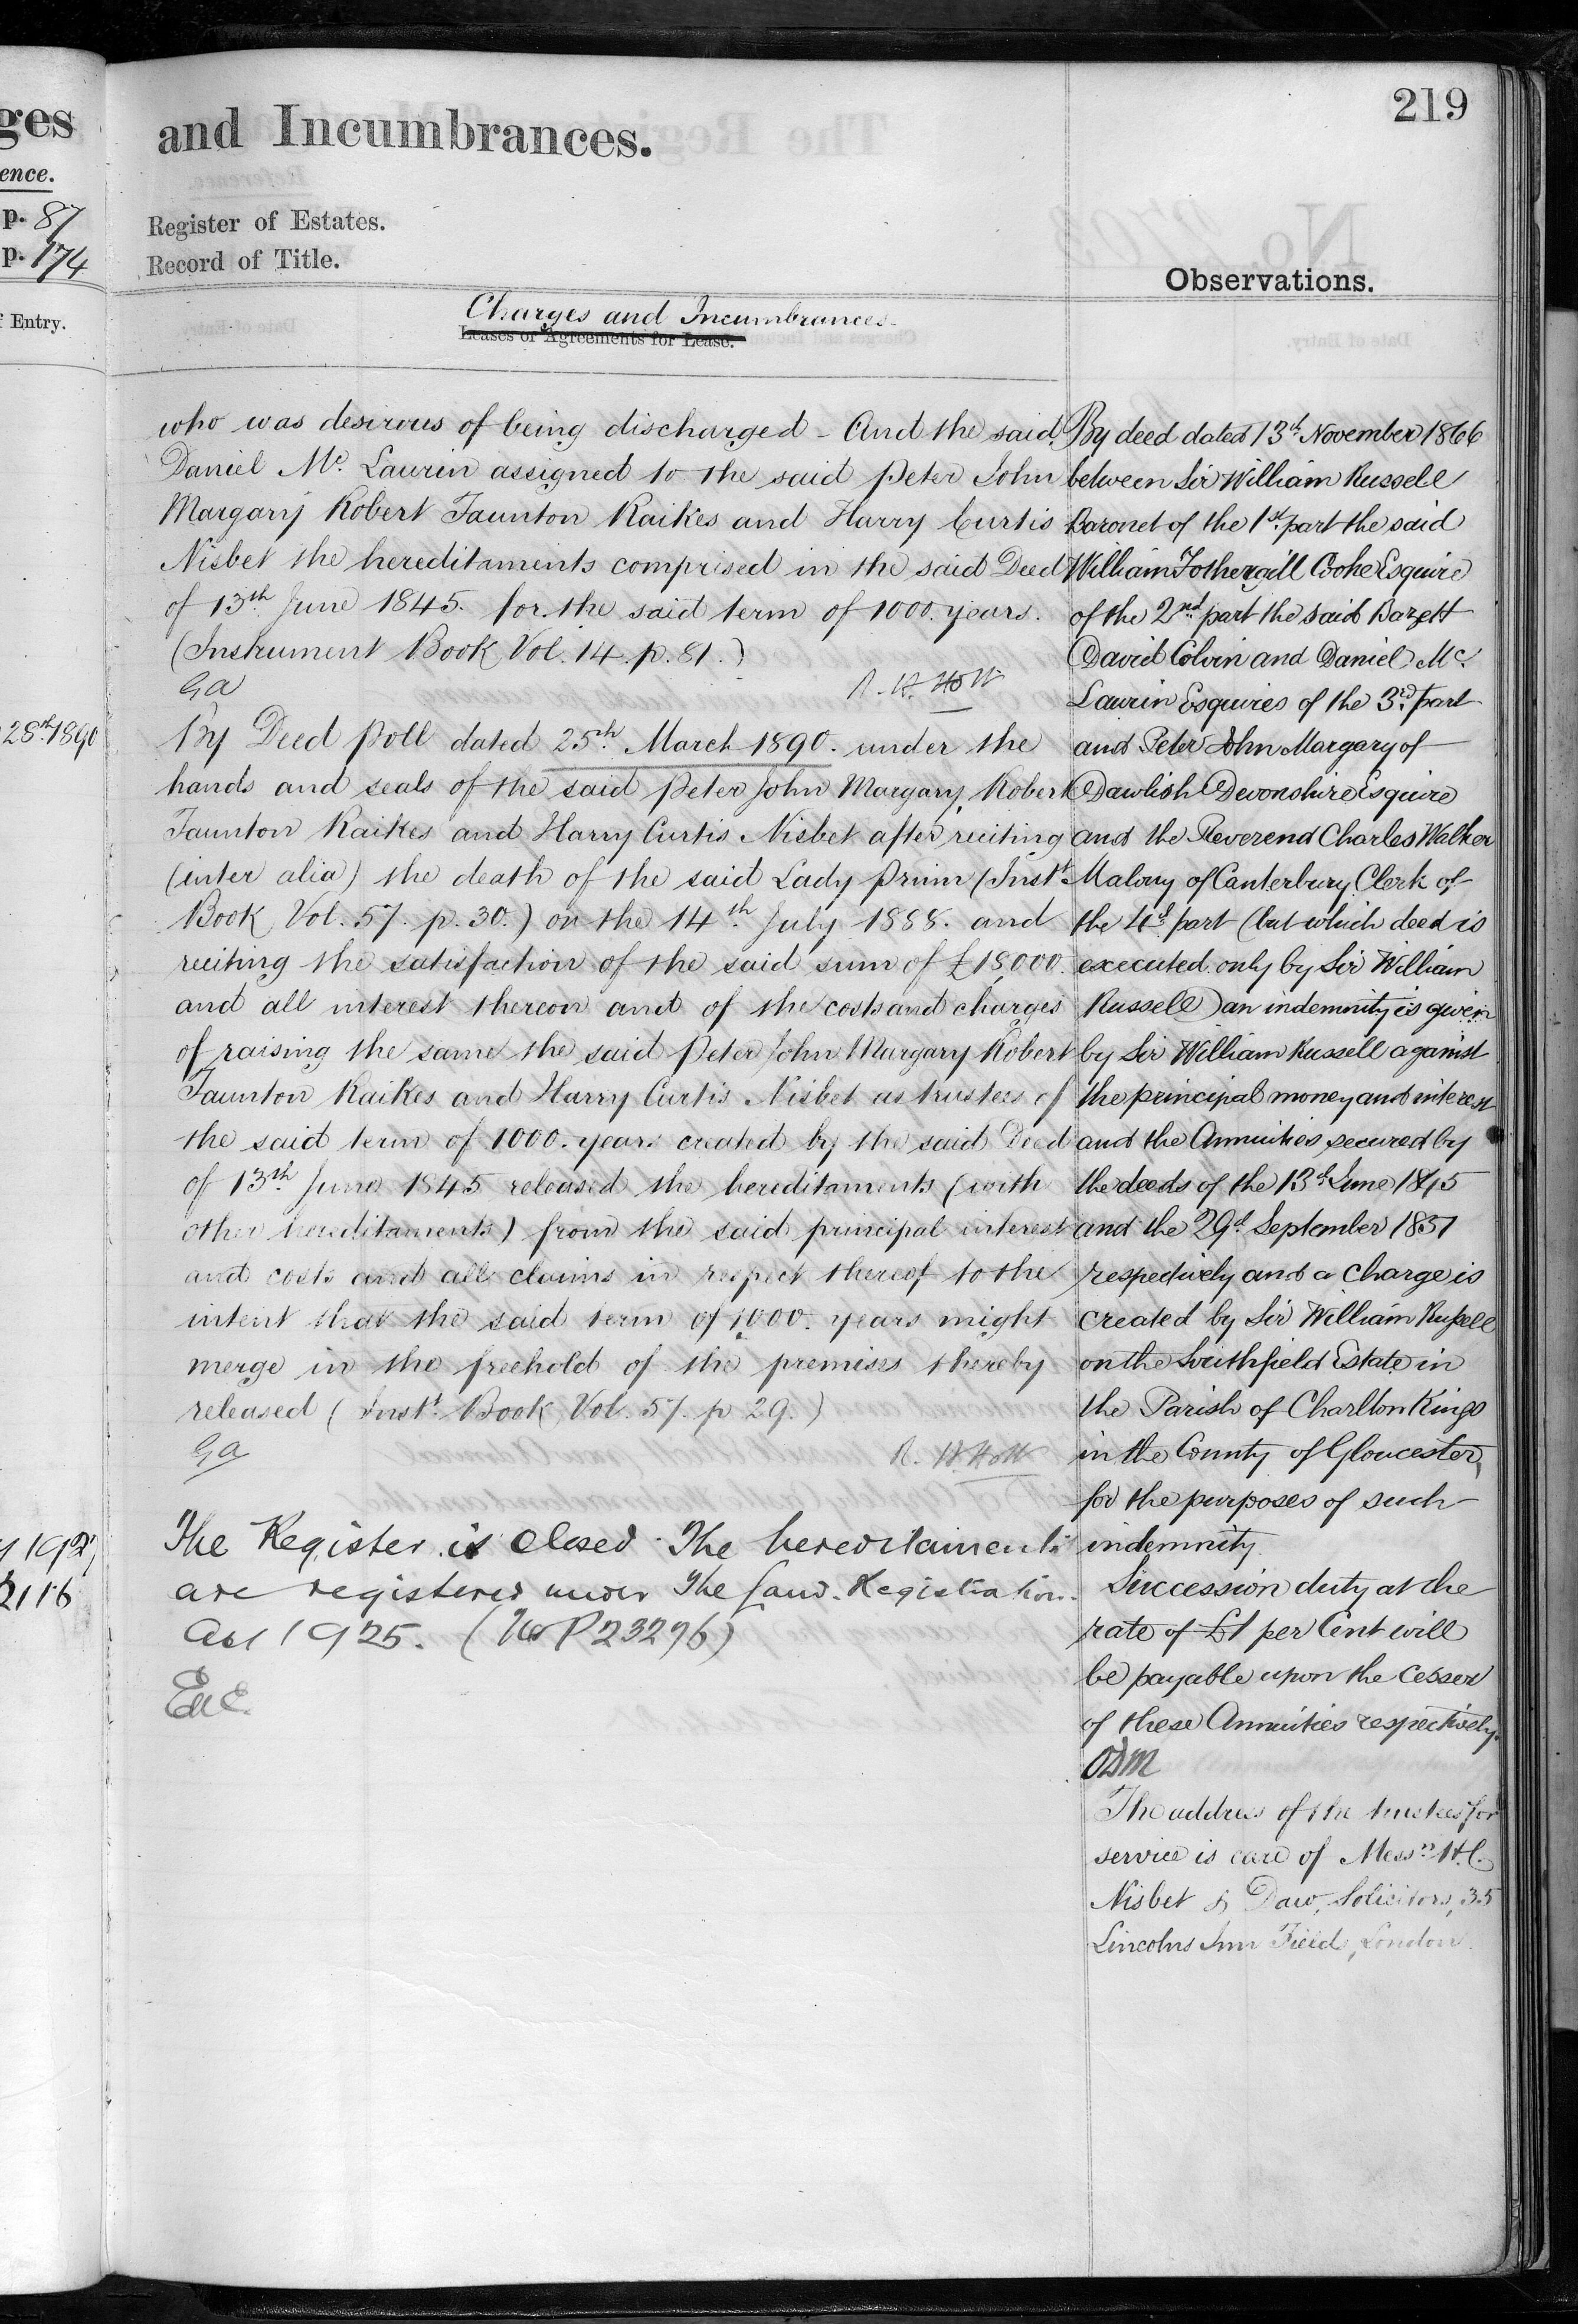 ges
ence.
p. 87
p. 174
Entry.
28th 1890
219
and Incumbrances.
Register of Estates.
Record of Title.
Charges and Incumbrances.
Leases or Agreements for Lease.
who was desirous of being discharged - And the said
Daniel Mc. Laurin assigned to the said Peter John
Margary Robert Taunton Raikes and Harry Curtis
Nisbet the hereditaments comprised in the said Deed
of 13th June 1845. for the said term of 1000. years.
(Instrument Book, Vol. 14. p. 81.)
GA R. H. Holt
By Deed Poll dated 25th March 1890. under the
hands and seals of the said Peter John Margary, Robert
Taunton Raikes and Harry Curtis Nisbet after reciting
(inter alia) the death of the said Lady Prinn (Inst.
Book, Vol. 57. p. 30.) on the 14th July 1888. and
reciting the satisfaction of the said sum of £18,000.
and all interest thereon and of the costs and charges
of raising the same the said Peter John Margary Robert
Taunton Raikes and Harry Curtis Nisbet as trustees of
the said term of 1000. years created by the said Deed
of 13th June 1845 released the hereditaments (with
other hereditaments) from the said principal interest
and costs and all claims in respect thereof to the
intent that the said term of 1000. years might
merge in the freehold of the premises thereby
released (Inst. Book, Vol. 57. p 29.)
GA R. H. Holt
The Register is closed. The hereditaments
are registered under The Land Registration
Act 1925. (No P23296)
Observations.
By deed dated 13th November 1866
between Sir William Russell
Baronet of the 1st part the said
William Fothergill Cooke Esquire
of the 2nd part the said Bazett
David Colvin and Daniel Mc.
Laurin Esquires of the 3rd part
and Peter John Margary of
Dawlish Devonshire Esquire
and the Reverend Charles Walker
of Canterbury Clerk of
the 4th part (but which deed is
executed only by Sir William
Russell) an indemnity is given
by Sir William Russell against
the principal money and interest
and the Annuities secured by
the deeds of the 13th June 1845
and the 29th September 1851
respectively and a charge is
created by Sir William Russell
on the Southfield Estate in
the Parish of Charlton Kings
in the County of Gloucester,
for the purposes of such
indemnity.
Succession duty at the
rate of £1 per Cent will
be payable upon the cesser
of these Annuities respectively.
The address of the trustees for
service is care of Messrs. H.C.
Nisbet & Daw, Solicitors, 35
Lincolns Inn Fields, London.